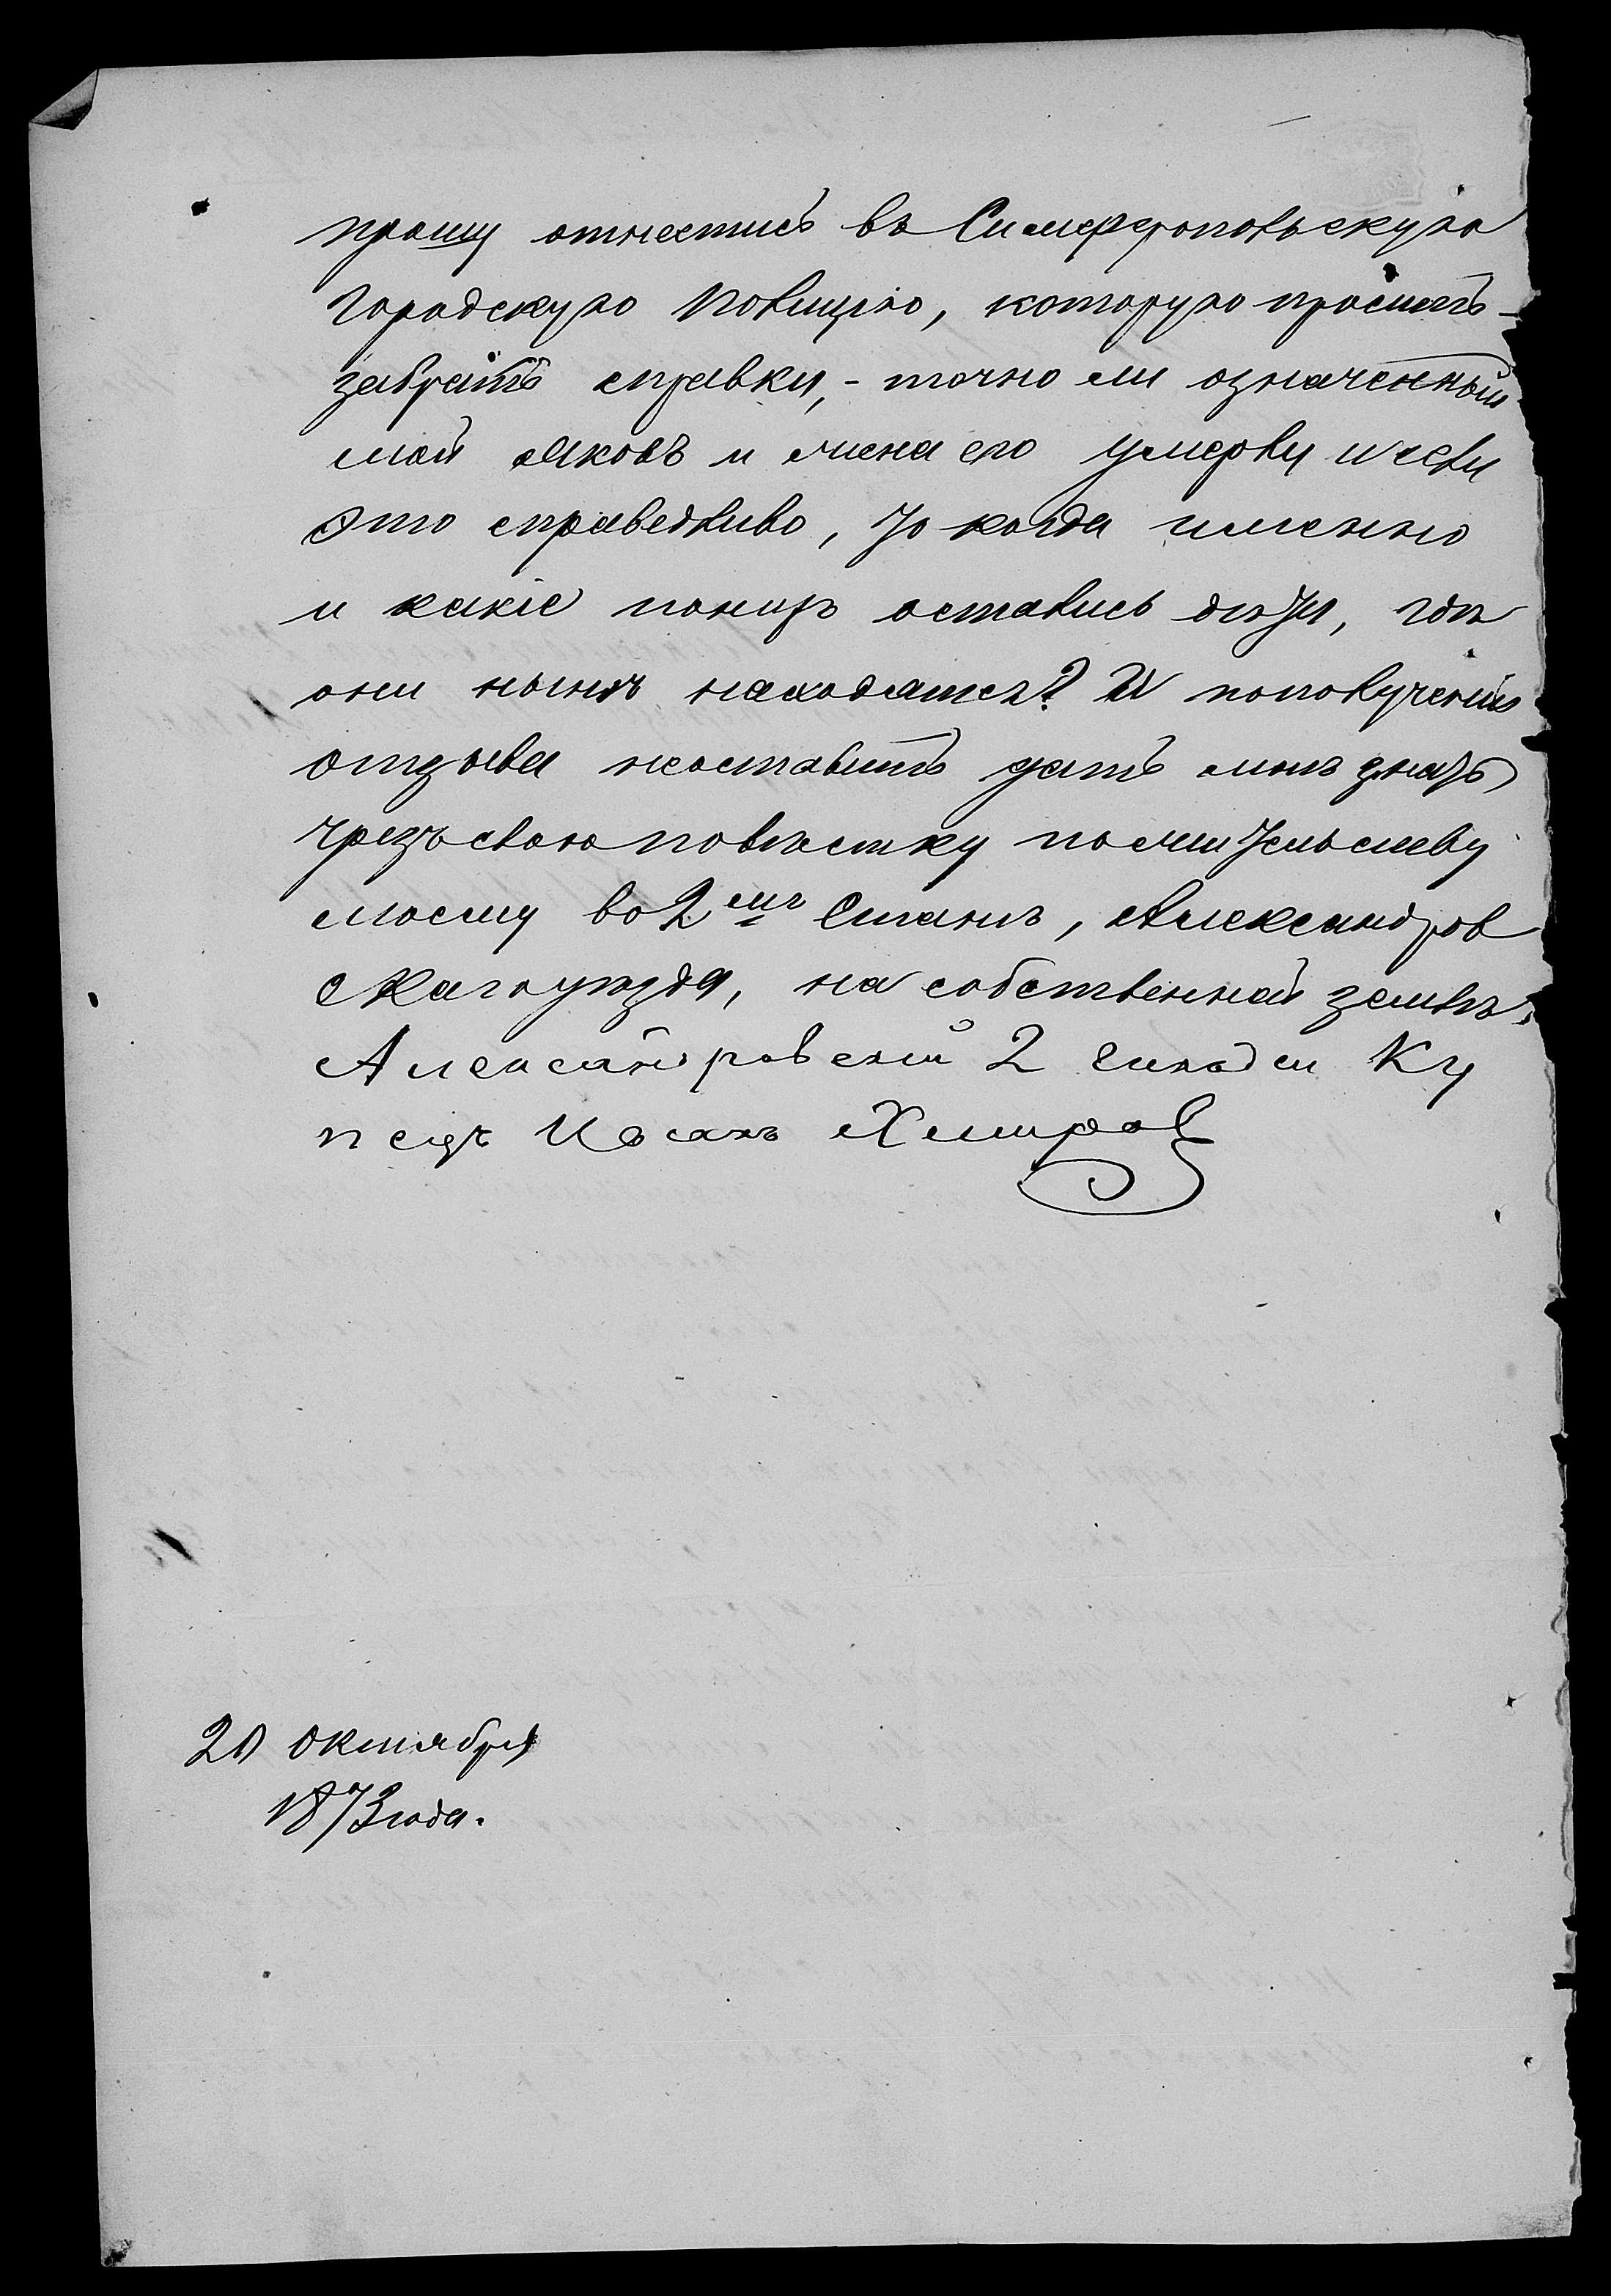 прошу отнестись въ Симферопольскую
Городскую Полицію, которую просить
забрать справки, - точно ли означенный
мой Яковъ и жена его умерли и если
это справедливо, то когда именно
и какіе по нихъ остались дѣти, гдѣ
они нынѣ находятся? И пополученіи
отзыва неоставить дать мнѣ знать
чрезъ свою повѣстку пожительству
моему во 2мъ Станѣ, Александров
скаго уѣзда, на собственной землѣ.
Александровскій 2 Гильдіи Ку
пецъ Иванъ
20 Октября
1873 года.